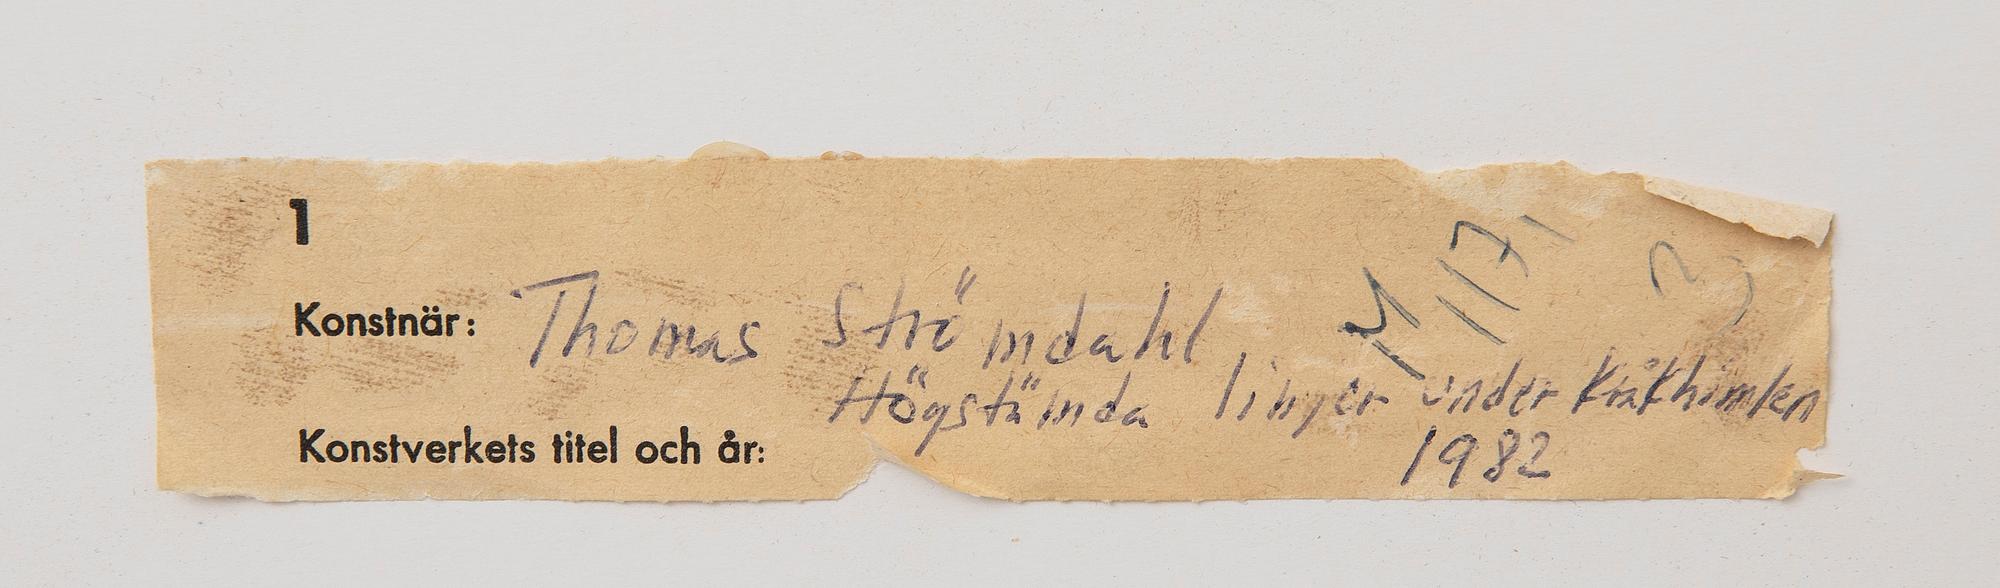 1
M 117,
Konstnär: Thomas Strömdahl
Högstämda linjer under Kråkhimlen
Konstverkets titel och år: 1982